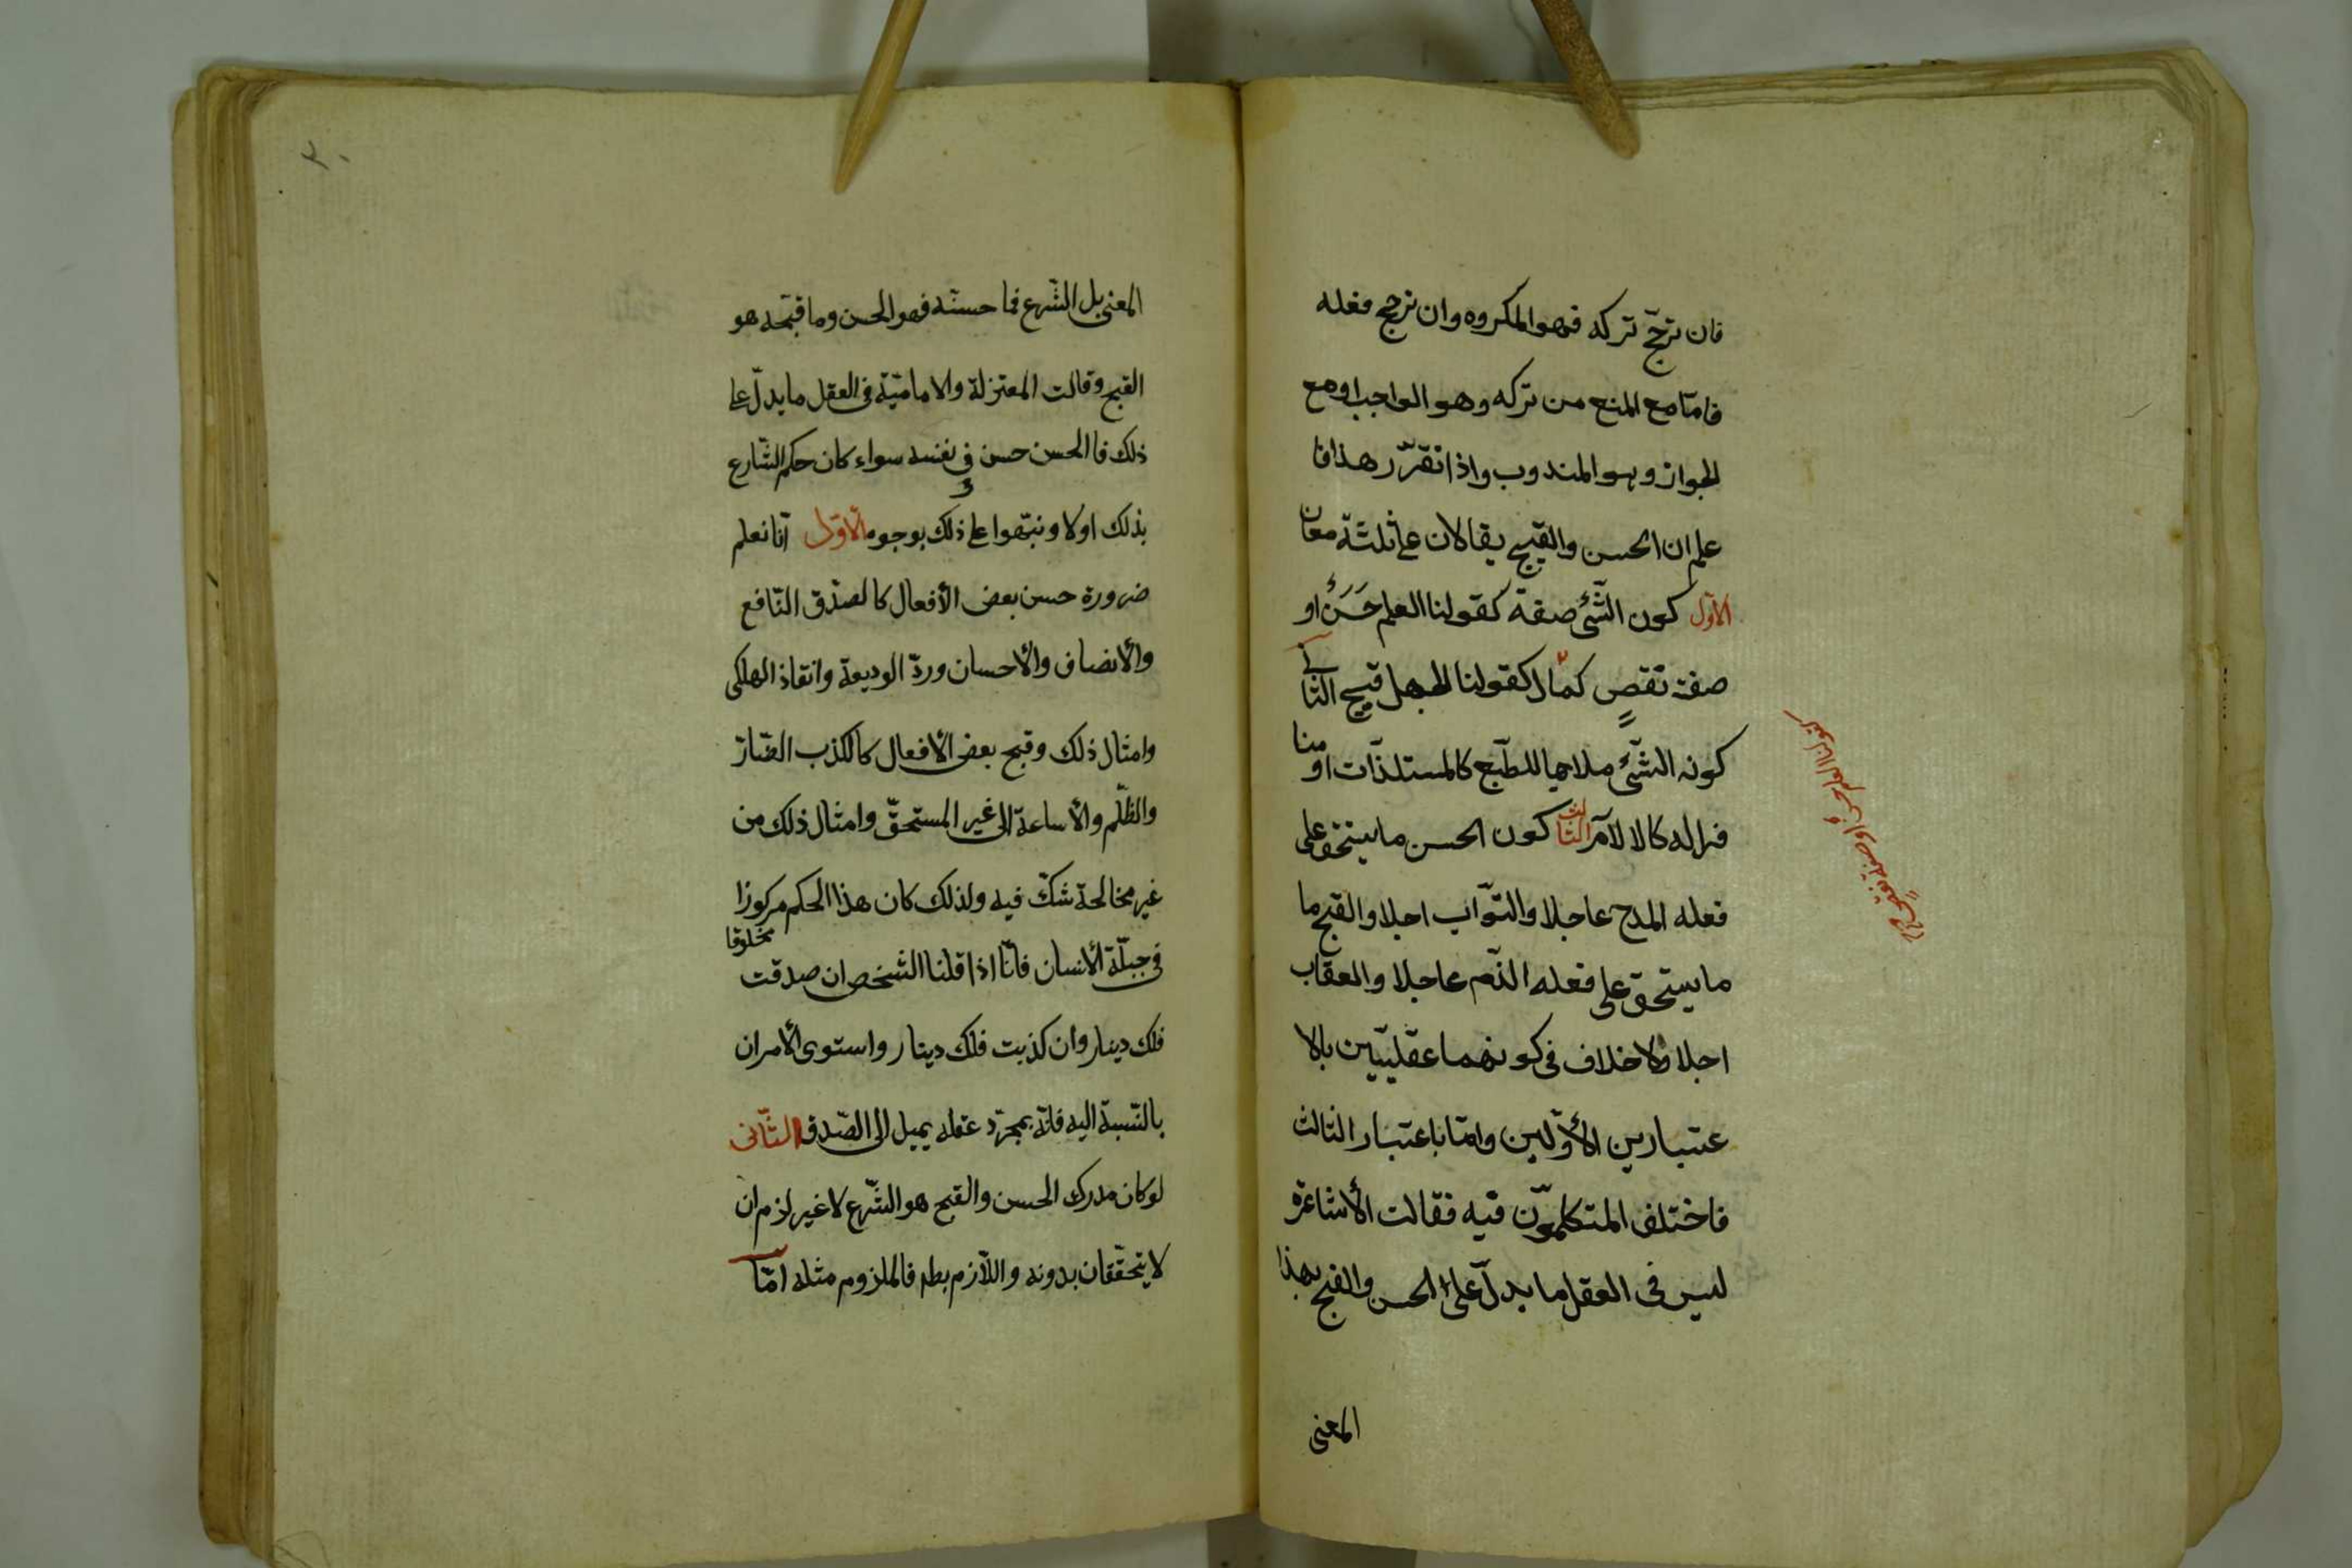 فان ترجّح تركه فهو المكروه وان ترجح فعله
فامّا مع المنع من تركه وهو الواجب او مع
الجواز وهو المندوب واذا تقرّر هذا فا
علم ان الحسن والقبيح يقالان على ثلثة معان
الاوّل كون الشّئ صفة كقولنا العلم حَسَنٌ او
صفة نقصٍ كمال كقولنا الجهل قبيح الثانى
كونه الشّئ ملايما للطّبع كالمستلذّات او منا
فرا له كالالآم الثالث كون الحسن ما يستحق على
فعله المدح عاجلا والثّواب اجلا والقبح ما
ما يستحق على فعله الذّم عاجلا والعقاب
اجلا ولا خلاف فى كونهما عقليّين بالا
عتبارين الأوّلين وامّا باعتبار الثالث
فاختلف المتكلّمون فيه فقالت الأشاعرة
ليس فى العقل ما يدلّ على الحسن والقبح بهذا
المعنى
كقولنا العلم حسنٌ او صفة نقصٍ
٣٠
المعنى بل الشّرع فما حسنّه فهو الحسن وما قبّحه هو
القبح وقالت المعتزلة والاماميّة فى العقل ما يدلّ على
ذلك فا الحسن حسن فى نفسه سواء كان حكم الشّارع
بذلك اولا و نبّهوا على ذلك بوجوه الاوّل انّا نعلم
ضرورة حسن بعض الأفعال كالصّدق النّافع
والأنصاف والأحسان وردّ الوديعة وانقاذ الهلكى
وامثال ذلك وقبح بعض الأفعال كالكذب الضّارّ
والظّلم والأساءة الى غير المستحقّ وامثال ذلك من
غير مخالحة شكّ فيه ولذلك كان هذا الحكم مركوزا
مخلوقا
فى جبلّة الأنسان فانّا اذا قلنا الشخص ان صدقت
فلك دينار وان كذبت فلك دينار واستوى الأمران
بالنّسبة اليه فانّه بمجرّد عقله يميل الى الصّدق الثّانى
لو كان مدرك الحسن والقبح هو الشّرع لا غير لزم ان
لا يتحقّقان بدونه واللّازم بطم فالملزوم مثله امّا